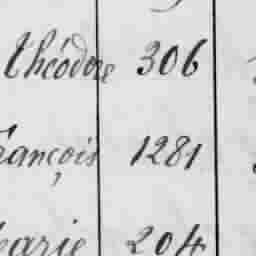 théodore 306
françois 1281
marie 204